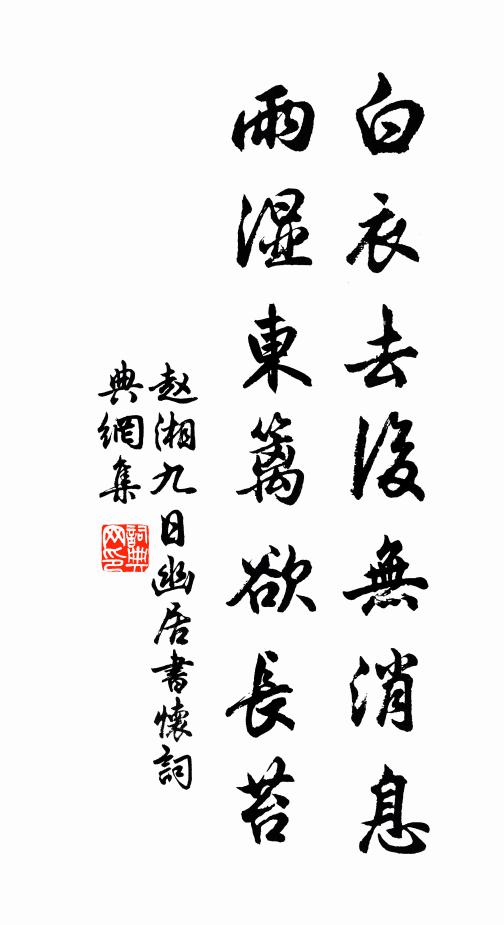 白衣去後無消息
雨濕東籬欲長苔
赵湘九日幽居書懷詞
典網集
詞典
网印